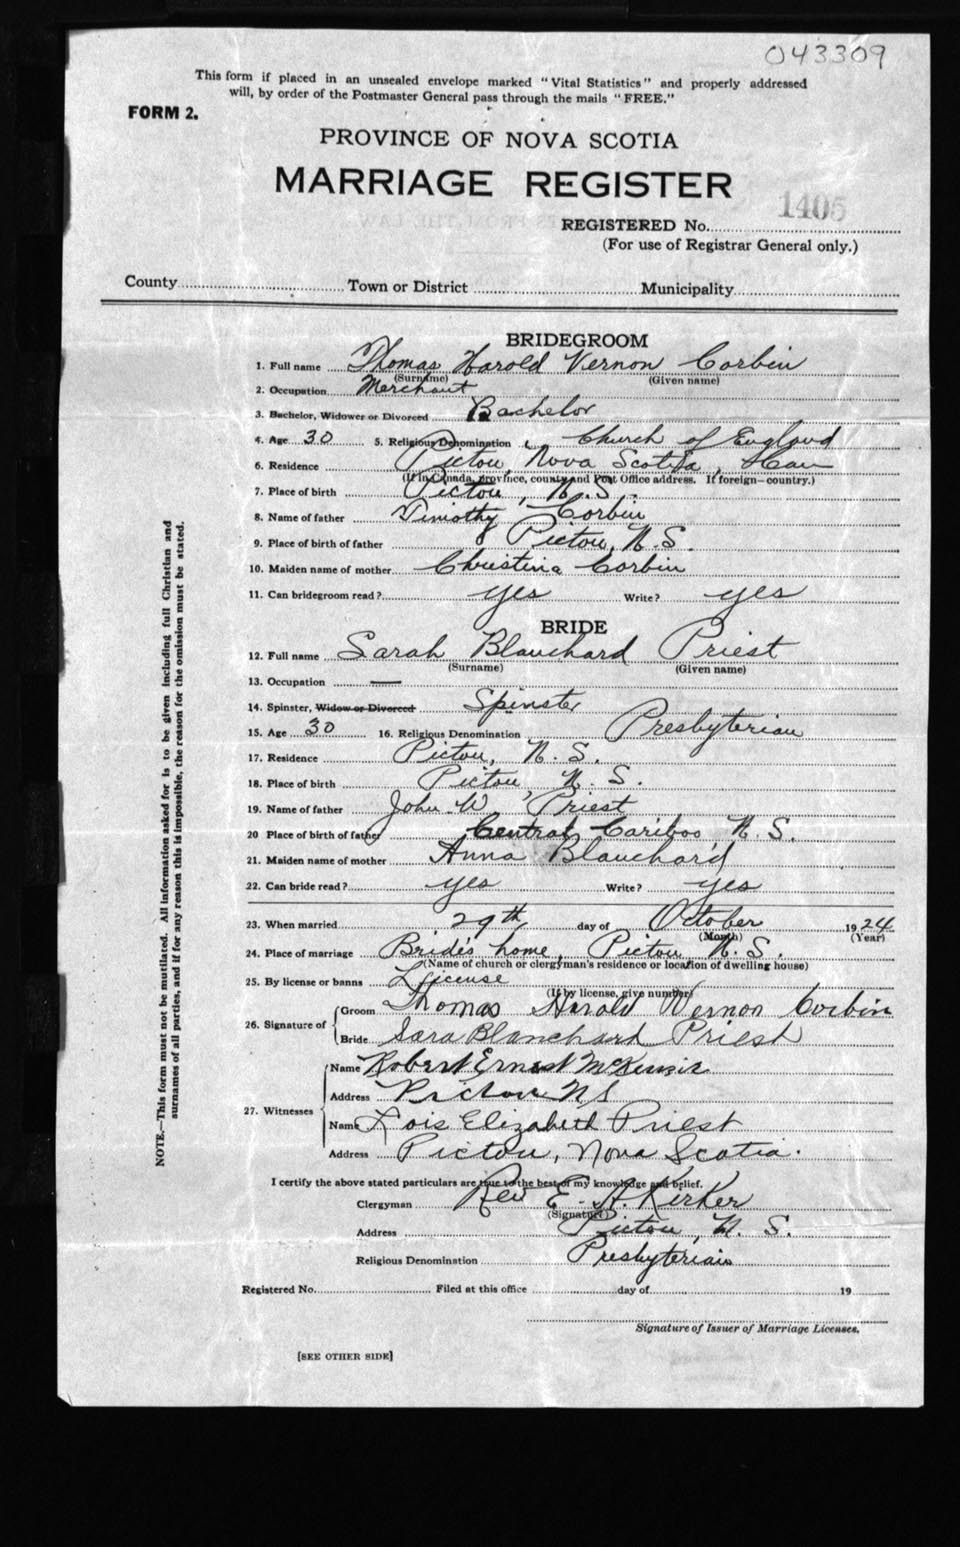 043309
This form if placed in an unsealed envelope marked "Vital Statistics" and properly addressed
will, by order of the Postmaster General pass through the mails "FREE."
FORM 2.
PROVINCE OF NOVA SCOTIA
MARRIAGE REGISTER
1405
REGISTERED No.
(For use of Registrar General only.)
County Town or District Municipality
BRIDEGROOM
1. Full name Thomas Harold Vernon Corbin
(Surname) (Given name)
2. Occupation Merchant
3. Bachelor, Widower or Divorced Bachelor
4. Age 30 5. Religious Denomination Church of England
6. Residence Pictou, Nova Scotia, Can
(If in Canada, province, county and Post Office address. If foreign—country.)
7. Place of birth Pictou, N.S.
8. Name of father Timothy Corbin
9. Place of birth of father Pictou, N.S.
10. Maiden name of mother Christina Corbin
11. Can bridegroom read? yes Write? yes
BRIDE
12. Full name Sarah Blanchard Priest
(Surname) (Given name)
13. Occupation —
14. Spinster, Widow or Divorced Spinster
15. Age 30 16. Religious Denomination Presbyterian
17. Residence Pictou, N.S.
18. Place of birth Pictou, N.S.
19. Name of father John W. Priest
20 Place of birth of father Central Cariboo N.S.
21. Maiden name of mother Anna Blanchard
22. Can bride read? yes Write? yes
23. When married 29th day of October 1924
(Month) (Year)
24. Place of marriage Bride's home, Pictou N.S.
(Name of church or clergyman's residence or location of dwelling house)
25. By license or banns License
(If by license, give number)
26. Signature of Groom Thomas Harold Vernon Corbin
Bride Sara Blanchard Priest
27. Witnesses Name Robert Ernest McKenzie
Address Pictou NS
Name Lois Elizabeth Priest
Address Pictou, Nova Scotia.
I certify the above stated particulars are true to the best of my knowledge and belief.
Clergyman Rev E. A. Kirker
(Signature)
Address Pictou, N.S.
Religious Denomination Presbyterian
Registered No. Filed at this office day of 19
Signature of Issuer of Marriage Licenses.
[SEE OTHER SIDE]
NOTE.—This form must not be mutilated. All information asked for is to be given including full Christian and
surnames of all parties, and if for any reason this is impossible, the reason for the omission must be stated.